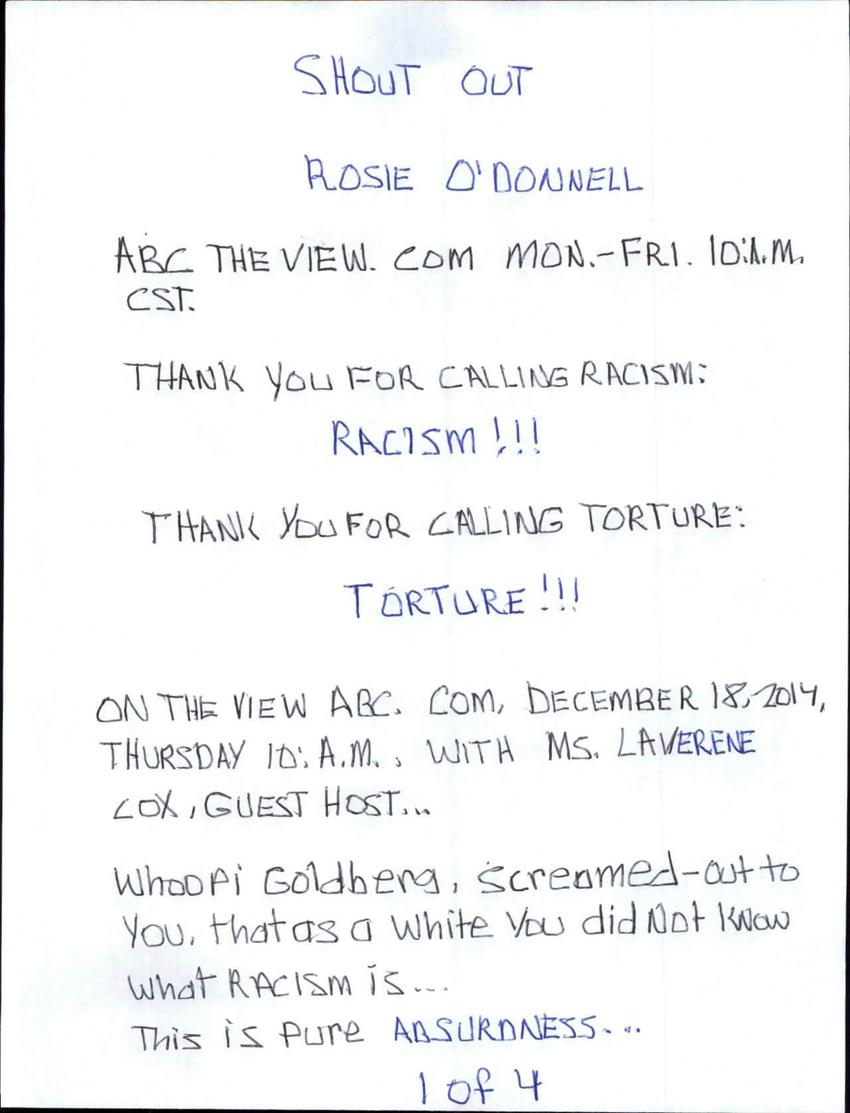 SHOUT OUT
ROSIE O'DONNELL
ABC THE VIEW. COM MON.-FRI. 10:A.M.
CST.
THANK YOU FOR CALLING RACISM:
RACISM!!!
THANK YOU FOR CALLING TORTURE:
TORTURE!!!
ON THE VIEW ABC. COM, DECEMBER 18, 2014,
THURSDAY 10: A.M., WITH MS. LAVERENE
COX, GUEST HOST...
Whoopi Goldberg, screamed-out to
You, that as a white You did Not Know
What RACISM is...
This is Pure ABSURDNESS...
1 of 4